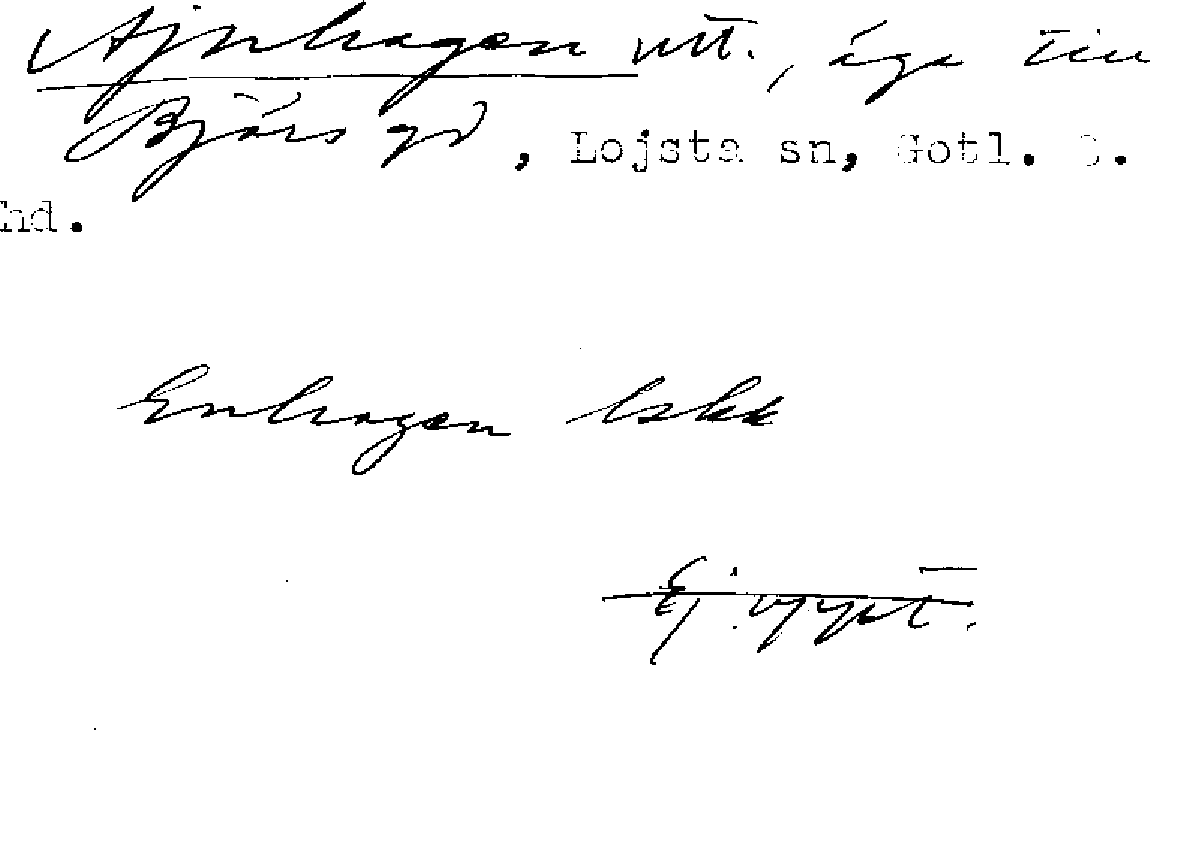 Ajnhagen utt., äga till
Bjärs gd, Lojsta sn, Gotl. S.
hd.
Enhagen Iskk
Ej uppt.